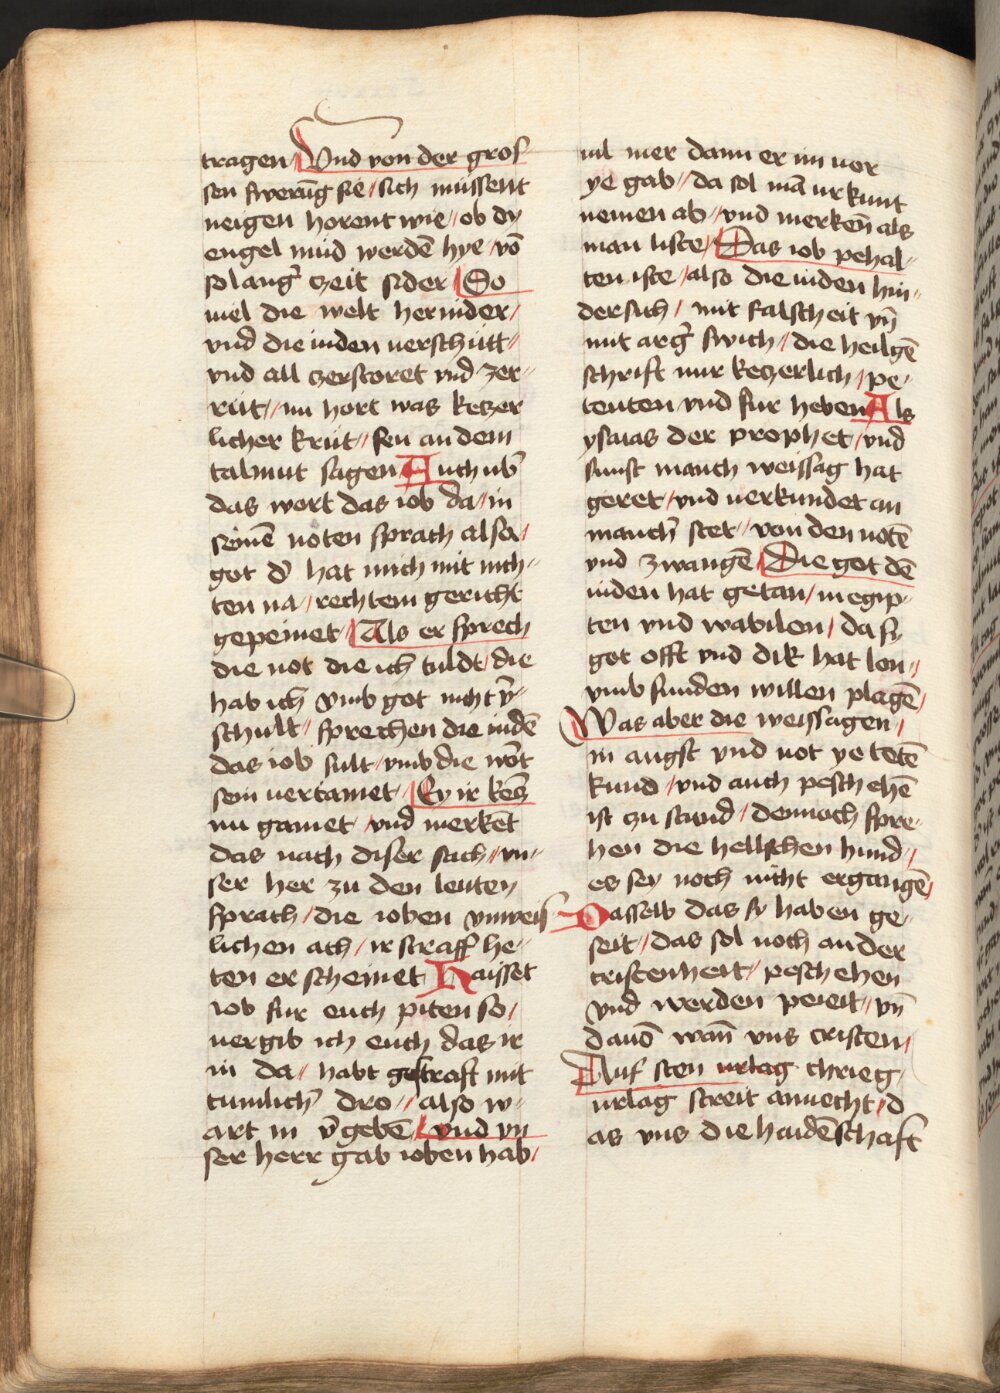 tragen / Vnd von der gros-
sen swerūg sie / sich müssent
neigen horent wie / ob dy
engel müd werdē hye / vō
so lang᷑ czeit sider / So
uiel die welt hernider /
vnd die iuden uerschütt /
vnd all czerstoret vnd zer-
rüt // nu hort was keczer
licher krüt // sen an dem
talmut sagen Auch ub᷑
das wort das iob da / in
seinē noten sprach also /
got d᷑ hat mich mit nich-
ten na / rechtem gericht
gepeinet / Als er sprech
die not die ich tuldt / die
hab ich vmb got nicht v᷑-
schult / sprechen die iudē
das iob sult / vmb die wōt
sein uertamet / Ey ir kecz᷑
nu gamet / vnd merkēt
das nach diser sach / vn-
ser her zu den leuten
sprach / die ioben vnweis-
lichen ach / ir straff he-
ten er scheinet Haisset
iob fur euch piten so /
uergib ich euch das ir
in da / habt gestraft mit
tumlich᷑ dro // also w-
art in v᷑gebē / vnd vn
ser herr gab ioben hab /
uil mer dann er im uor
ye gab / da sol mā urkunt
nemen ab / vnd merkēn als
man liste / Das iob pehal-
ten iste / also die iuden hin-
der sich / mit falscheit vn̄
mit arg᷑ swich / die heilgē
schrift nur keczerlich / pe-
teuten vnd fur heben Als
ysaias der prophet / vnd
sunst manch weissag hat
geret / vnd uerkundet an
manch᷑ stet // von den notē
vnd zwangē / Die got dē
iuden hat getan / in egip-
ten vnd wabilon / da sy
got offt vnd dik hat lon //
vmb sunden willen plagē /
Was aber die weissagen /
in angst vnd not ye tetē
kund / vnd auch peschehē
ist czu stund / dennoch spre-
hen die hellschen hund /
es sey noch nicht ergangē /
Dasselb das sy haben ge-
seit / das sol noch an der
cristenheit / peschehen
vnd werden pereit / vn̄
dauō wan̄ vns cristen /
Auf sten urlag chrieg /
urlag streit anuecht / d
as vns die haidēschaft